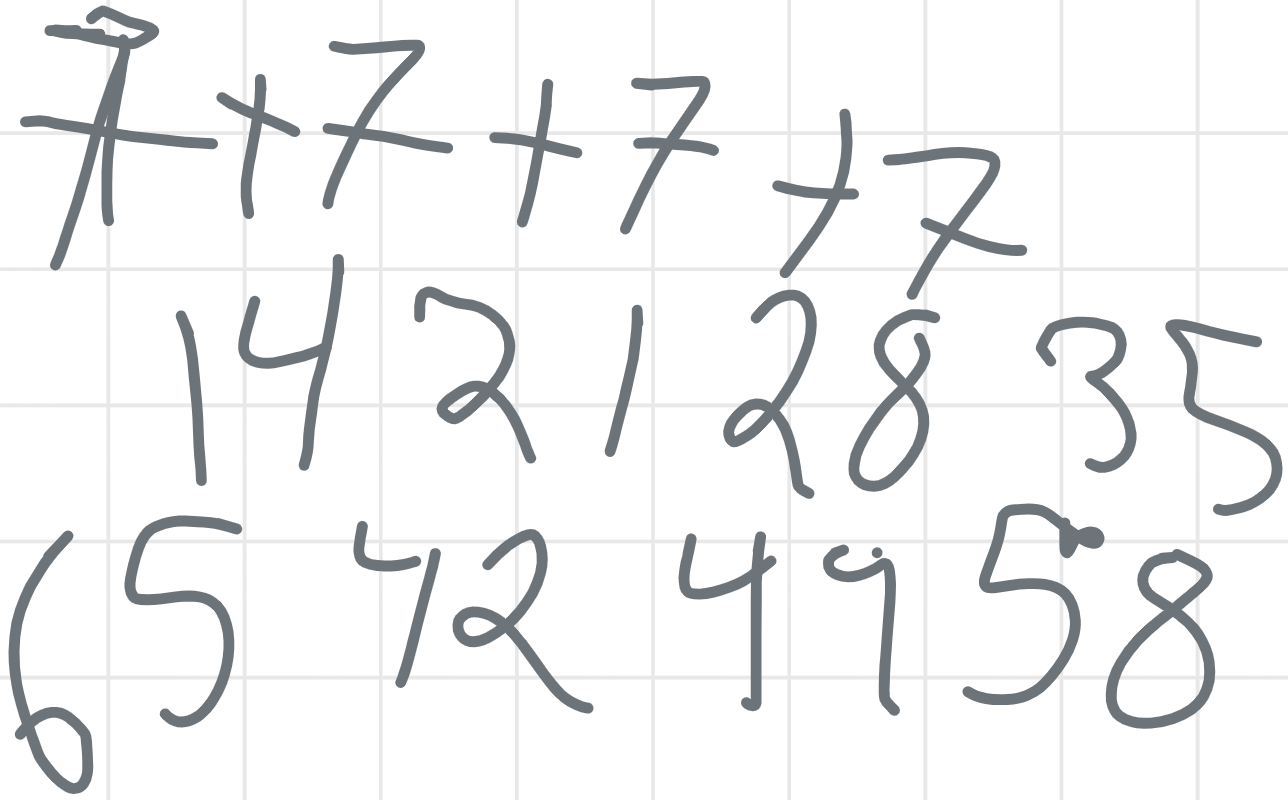 7+7+7+7
14 21 28 35
65 42 49 58